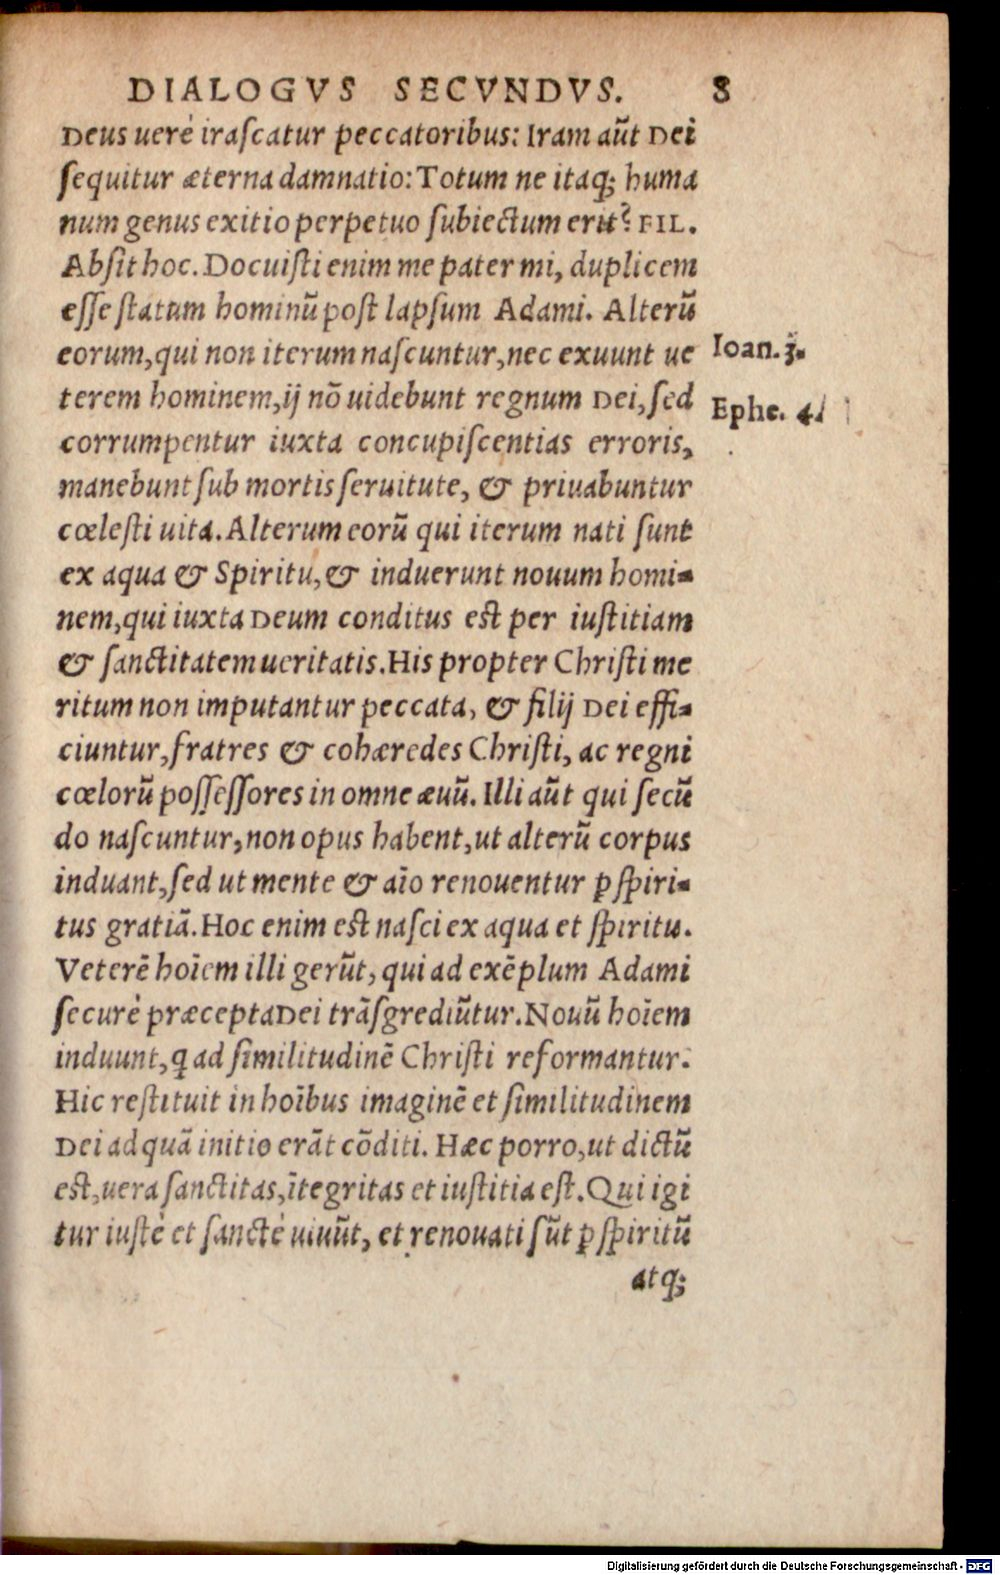 DIALOGVS SECVNDVS. 8
Deus uerè irascatur peccatoribus: Iram aūt Dei
sequitur æterna damnatio: Totum ne itaq; huma
num genus exitio perpetuo subiectum erit? FIL.
Absit hoc. Docuisti enim me pater mi, duplicem
esse statum hominū post lapsum Adami. Alterū
eorum, qui non iterum nascuntur, nec exuunt ue
Ioan. 3.
terem hominem, ij nō uidebunt regnum Dei, sed
Ephe. 4.
corrumpentur iuxta concupiscentias erroris,
manebunt sub mortis seruitute, & priuabuntur
cœlesti uita. Alterum eorū qui iterum nati sunt
ex aqua & Spiritu, & induerunt nouum homi-
nem, qui iuxta Deum conditus est per iustitiam
& sanctitatem ueritatis. His propter Christi me
ritum non imputantur peccata, & filij Dei effi-
ciuntur, fratres & cohæredes Christi, ac regni
cœlorū possessores in omne æuū. Illi aūt qui secū
do nascuntur, non opus habent, ut alterū corpus
induant, sed ut mente & aīo renouentur ꝑ spiri-
tus gratiā. Hoc enim est nasci ex aqua et spiritu.
Veterē hoīem illi gerūt, qui ad exēplum Adami
securè præcepta Dei trāsgrediūtur. Nouū hoīem
induunt, q ad similitudinē Christi reformantur.
Hic restituit in hoībus imaginē et similitudinem
Dei ad quā initio erāt cōditi. Hæc porro, ut dictū
est, uera sanctitas, ītegritas et iustitia est. Qui igi
tur iustè et sanctè uiuūt, et renouati sūt ꝑ spiritū
atq;
Digitalisierung gefördert durch die Deutsche Forschungsgemeinschaft - DFG